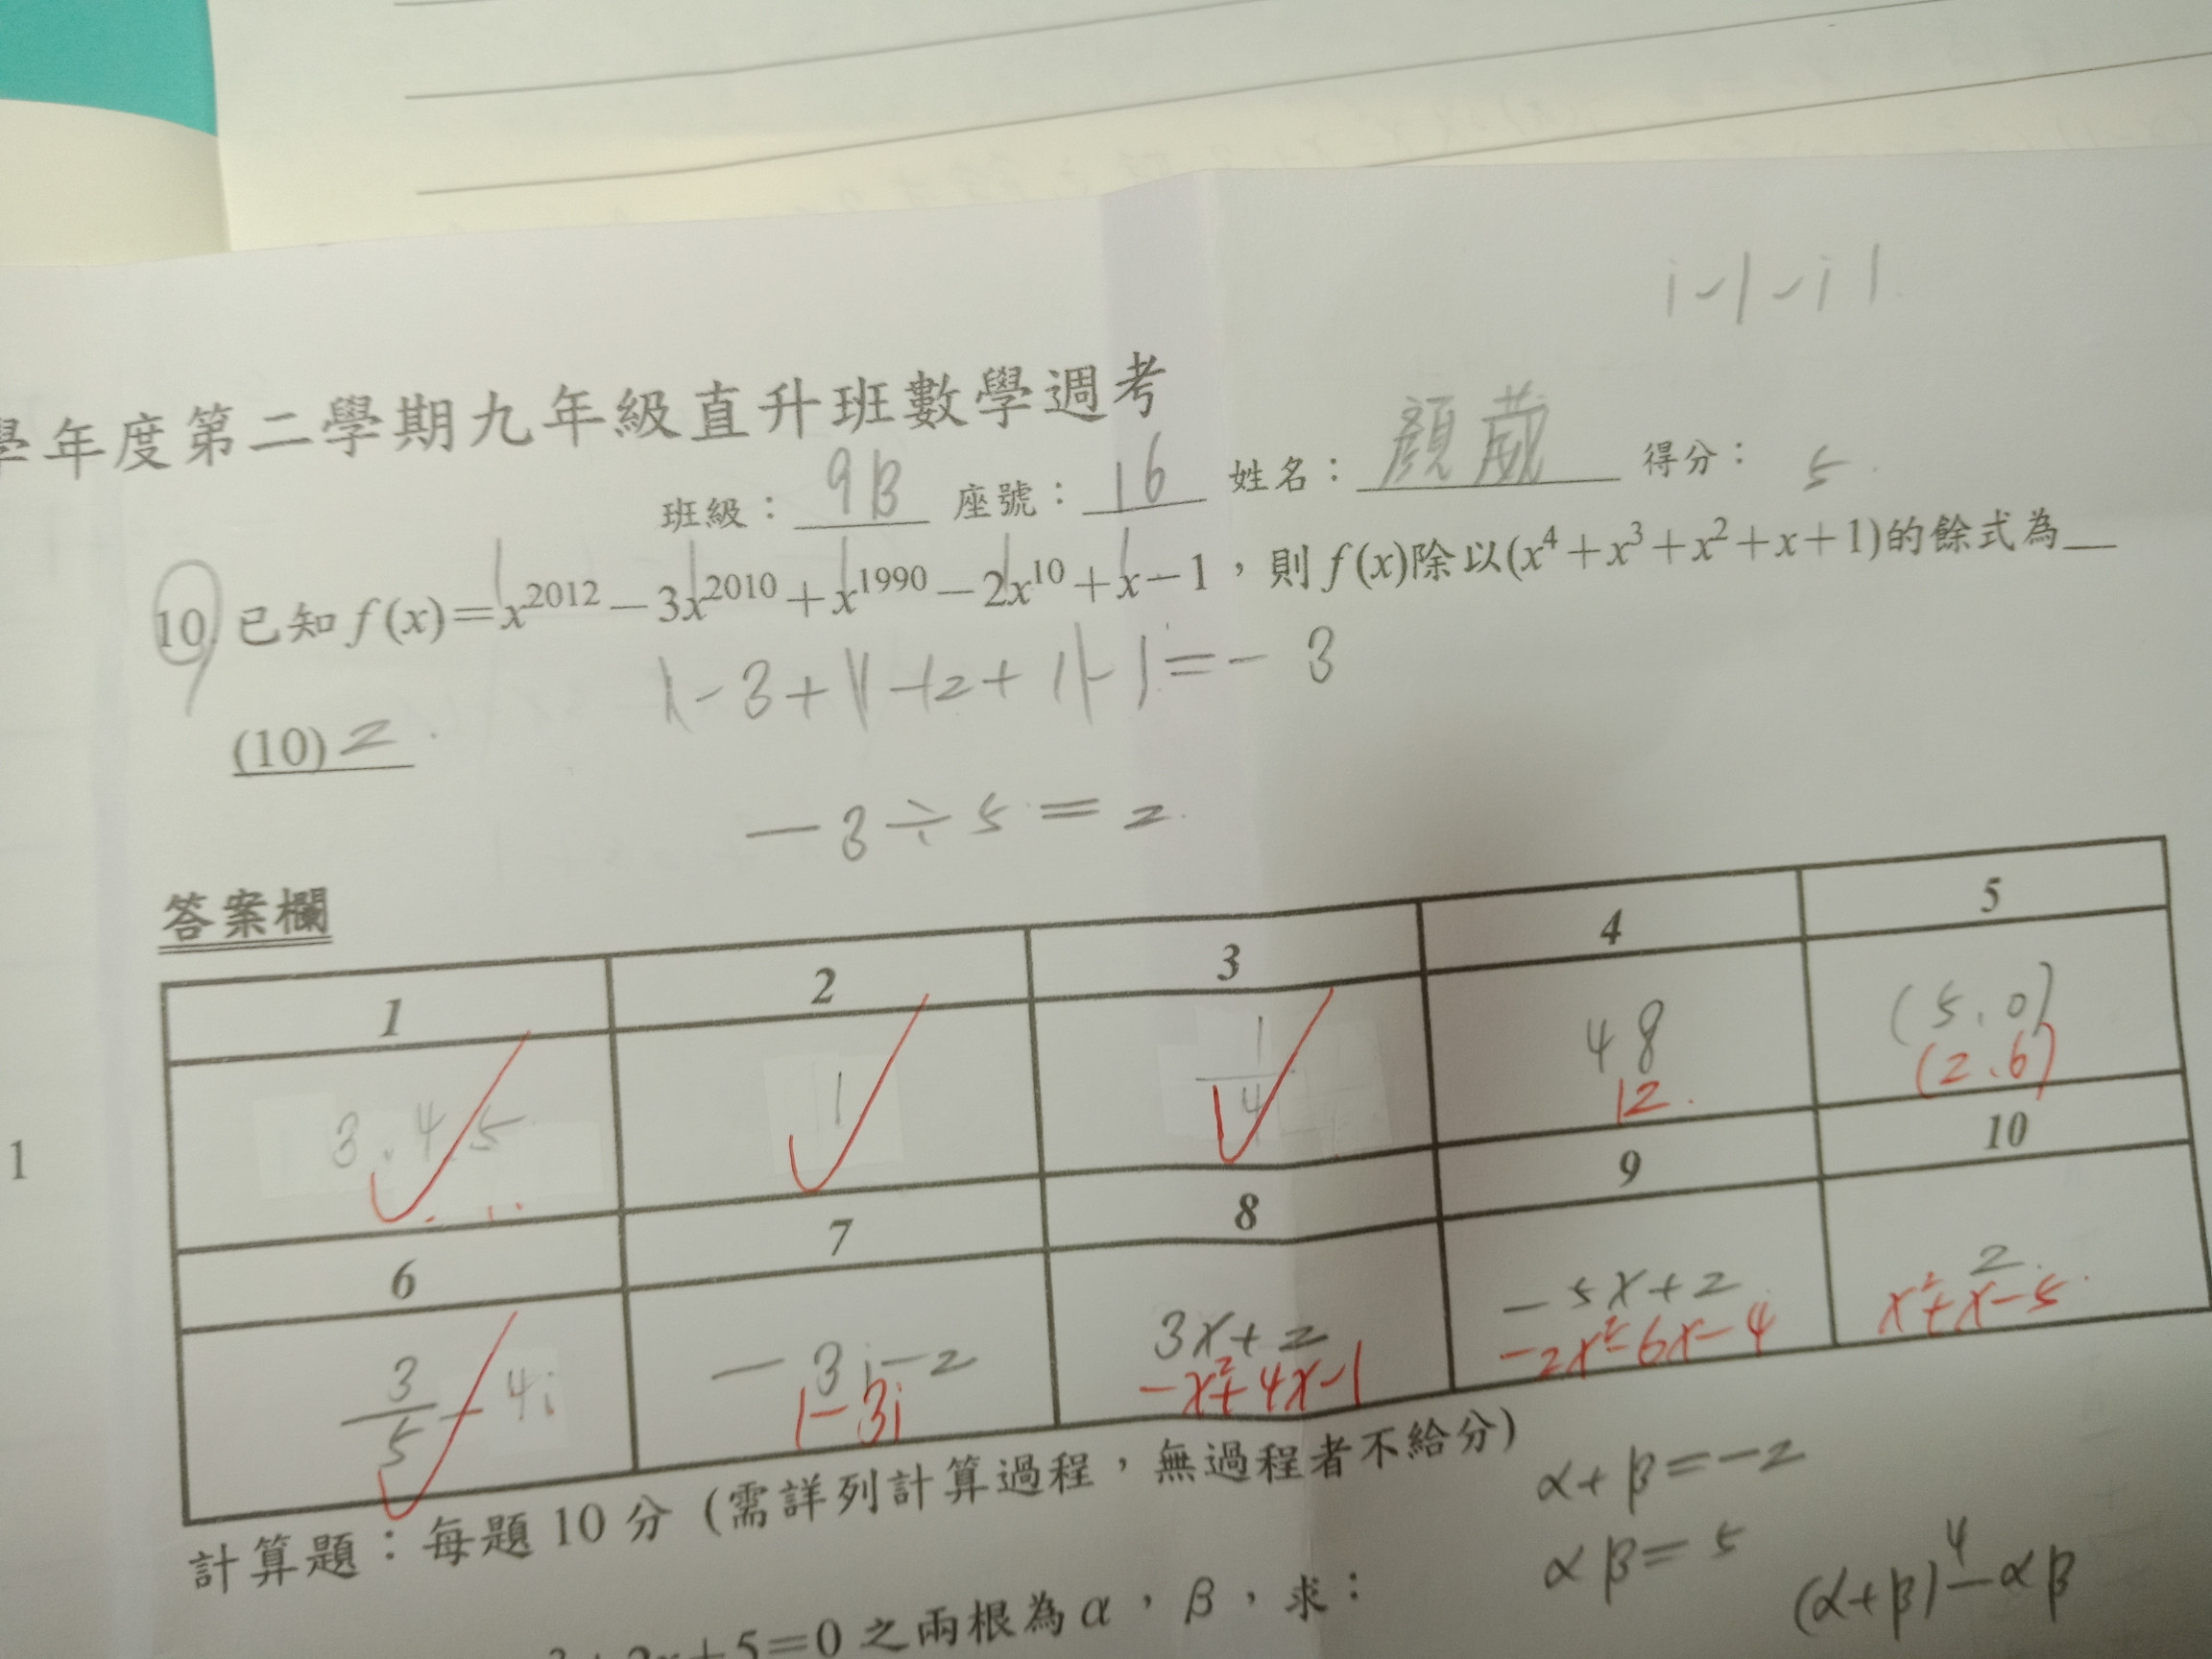 i -1 -i 1
學年度第二學期九年級直升班數學週考
班級：9B 座號：16 姓名：顏葳 得分：5
10. 已知 f(x)=x²⁰¹²−3x²⁰¹⁰+x¹⁹⁹⁰−2x¹⁰+x−1，則 f(x)除以(x⁴+x³+x²+x+1)的餘式為__
1 1 1 1 1
1-3+1-2+1-1=-3
(10) 2
-3÷5=2
答案欄
1 2 3 4 5
3.4.5 1 1/4 48 (5.0)
12. (2.6)
6 7 8 9 10
3/5-4i -3i-2 3x+2 -5x+2 2
1-3i -x²+4x-1 -2x²-6x-4 x²+x-5
1
計算題：每題 10 分（需詳列計算過程，無過程者不給分）
α+β=-2
αβ=5
(α+β)⁴-αβ
+5=0 之兩根為 α，β，求：